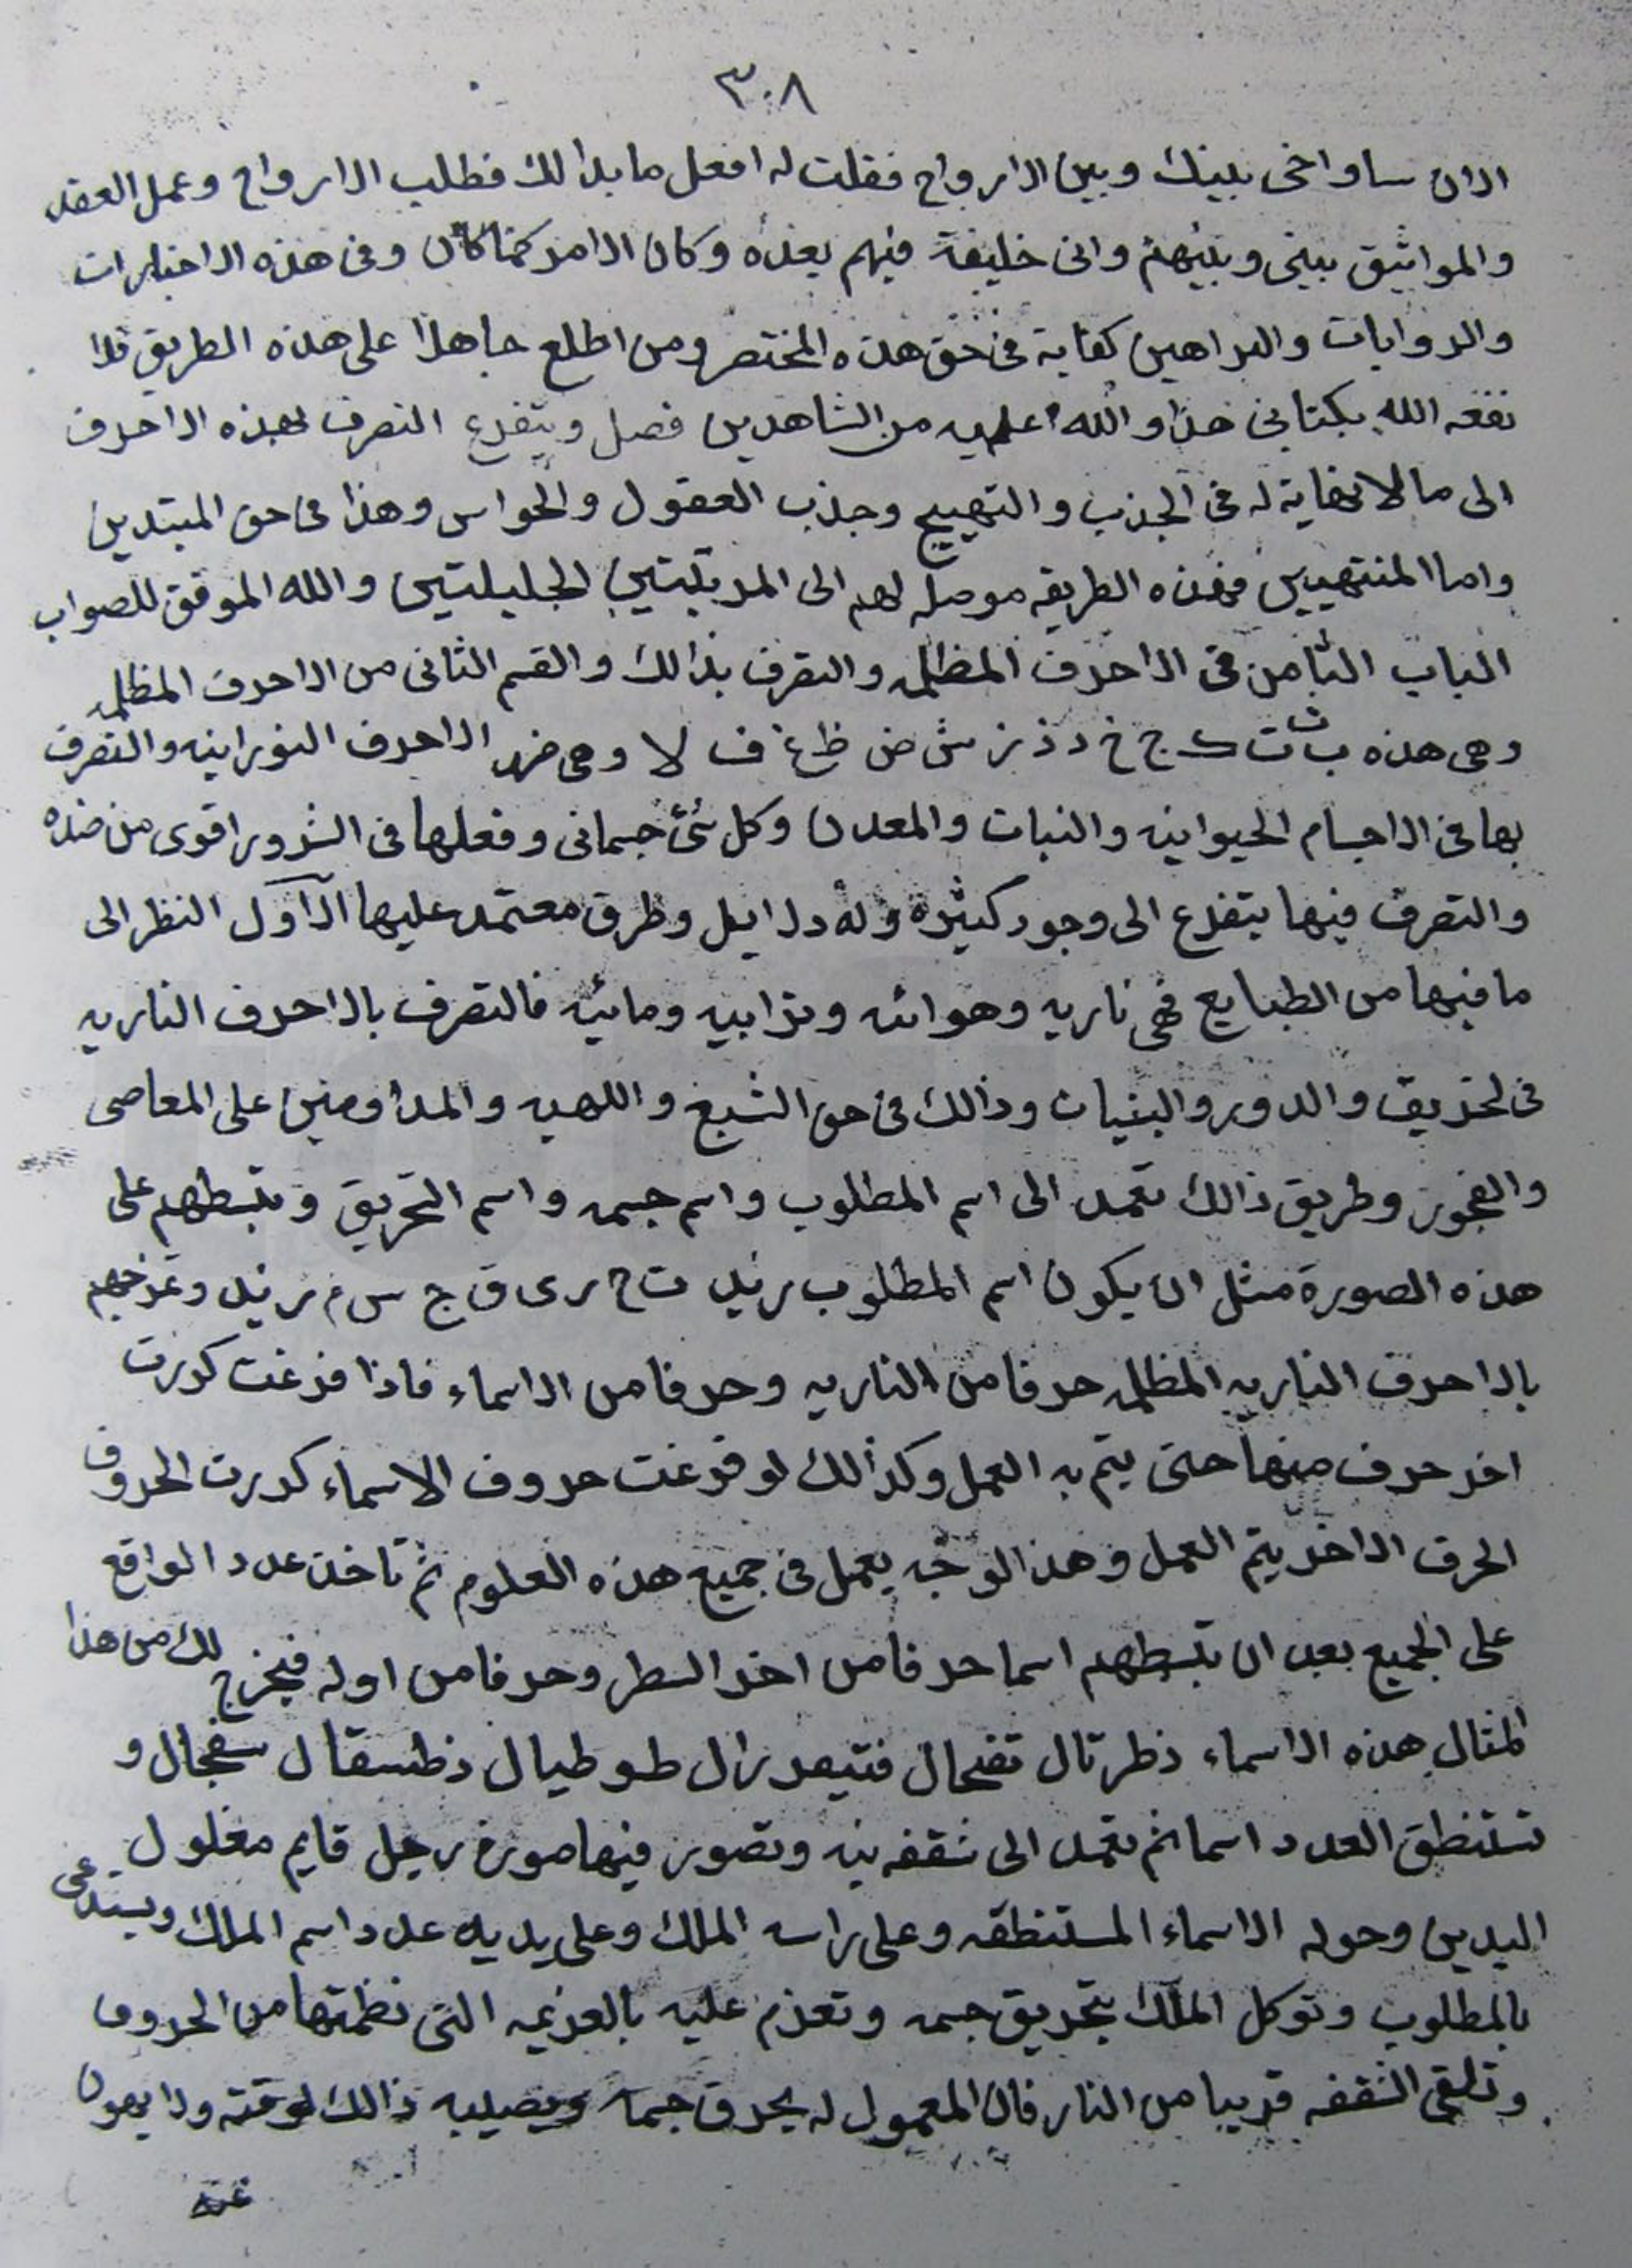 ٣٠٨
الان ساواخى بينك وبين الارواح فقلت له افعل ما بدا لك فطلب الارواح وعمل العقد
والمواثيق بينى وبينهم وانى خليفة فيهم بعده وكان الامر كما كان وفى هذه الاخبارات
والروايات والبراهين كفاية فى حق هذه المختصر ومن اطلع جاهلا على هذه الطريق فلا
نفعه الله بكتابى هذا والله اعلم من الشاهدين فصل ويتفرع التصرف بهذه الاحرف
الى ما لا نهاية له فى الجذب والتهييج وجذب العقول والحواس وهذا فى حق المبتدين
واما المنتهيين فهذه الطريقه موصله لهم الى المرتبتين الجليلتين والله الموفق للصواب
الباب الثامن فى الاحرف المظلمه والتصرف بذالك والقسم الثانى من الاحرف المظلمه
وهى هذه ب ث ت ج خ د ذ ز ش ض ظ غ ف لا وهى ضد الاحرف النورانيه والتصرف
بها فى الاجسام الحيوانيه والنبات والمعدن وكل شئ جسمانى وفعلها فى الشرور اقوى من ضده
والتصرف فيها يتفرع الى وجود كثيره وله دلايل وطرق معتمد عليها الاول النظر الى
ما فيها من الطبايع فهى ناريه وهوائه وترابيه ومائيه فالتصرف بالاحرف الناريه
فى لحريق والدور والبنيان وذالك فى حق الشبع واللهيه والمداومين على المعاصى
والفجور وطريق ذالك تعمد الى اسم المطلوب واسم جسمه واسم التحريق وتبسطهم على
هذه الصورة مثل ان يكون اسم المطلوب زيد ت ح ر ى ق ج س م ز يد وتمزجهم
بالاحرف الناريه المظلمه حرفا من الناريه وحرفا من الاسماء فاذا فرغت كررت
اخر حرف منها حتى يتم به العمل وكذالك لو فرغت حروف الاسماء كررت الحروف
الحرف الاخر يتم العمل وهذا الوجه يعمل فى جميع هذه العلوم ثم تاخذ عدد الواقع
على الجميع بعد ان تبسطهم اسما حرفا من اخر السطر وحرفا من اوله فيخرج لك من هذا
المثال هذه الاسماء ذظرتال تفحال فتيعدزال طوطيال ذظسقال سفجال و
تستنطق العدد اسما ثم تعمد الى شقفه نيه وتصور فيها صورة رجل قايم مغلول
اليدين وحوله الاسماء المستنطقه وعلى راسه الملك وعلى يديه عدد اسم الملك ويستدعى
بالمطلوب وتوكل الملك بتحريق جسمه وتعزم عليه بالعزيمه التى نظمتها من الحروف
وتلقى الشقفه قريبا من النار فان المعمول له يحرق جسمه ويصليه ذالك لوقته ولا يهون